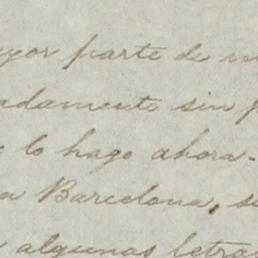 ayor parte de m
adamente sin p
e lo hago ahora-
a Barcelona, su
algunas letras